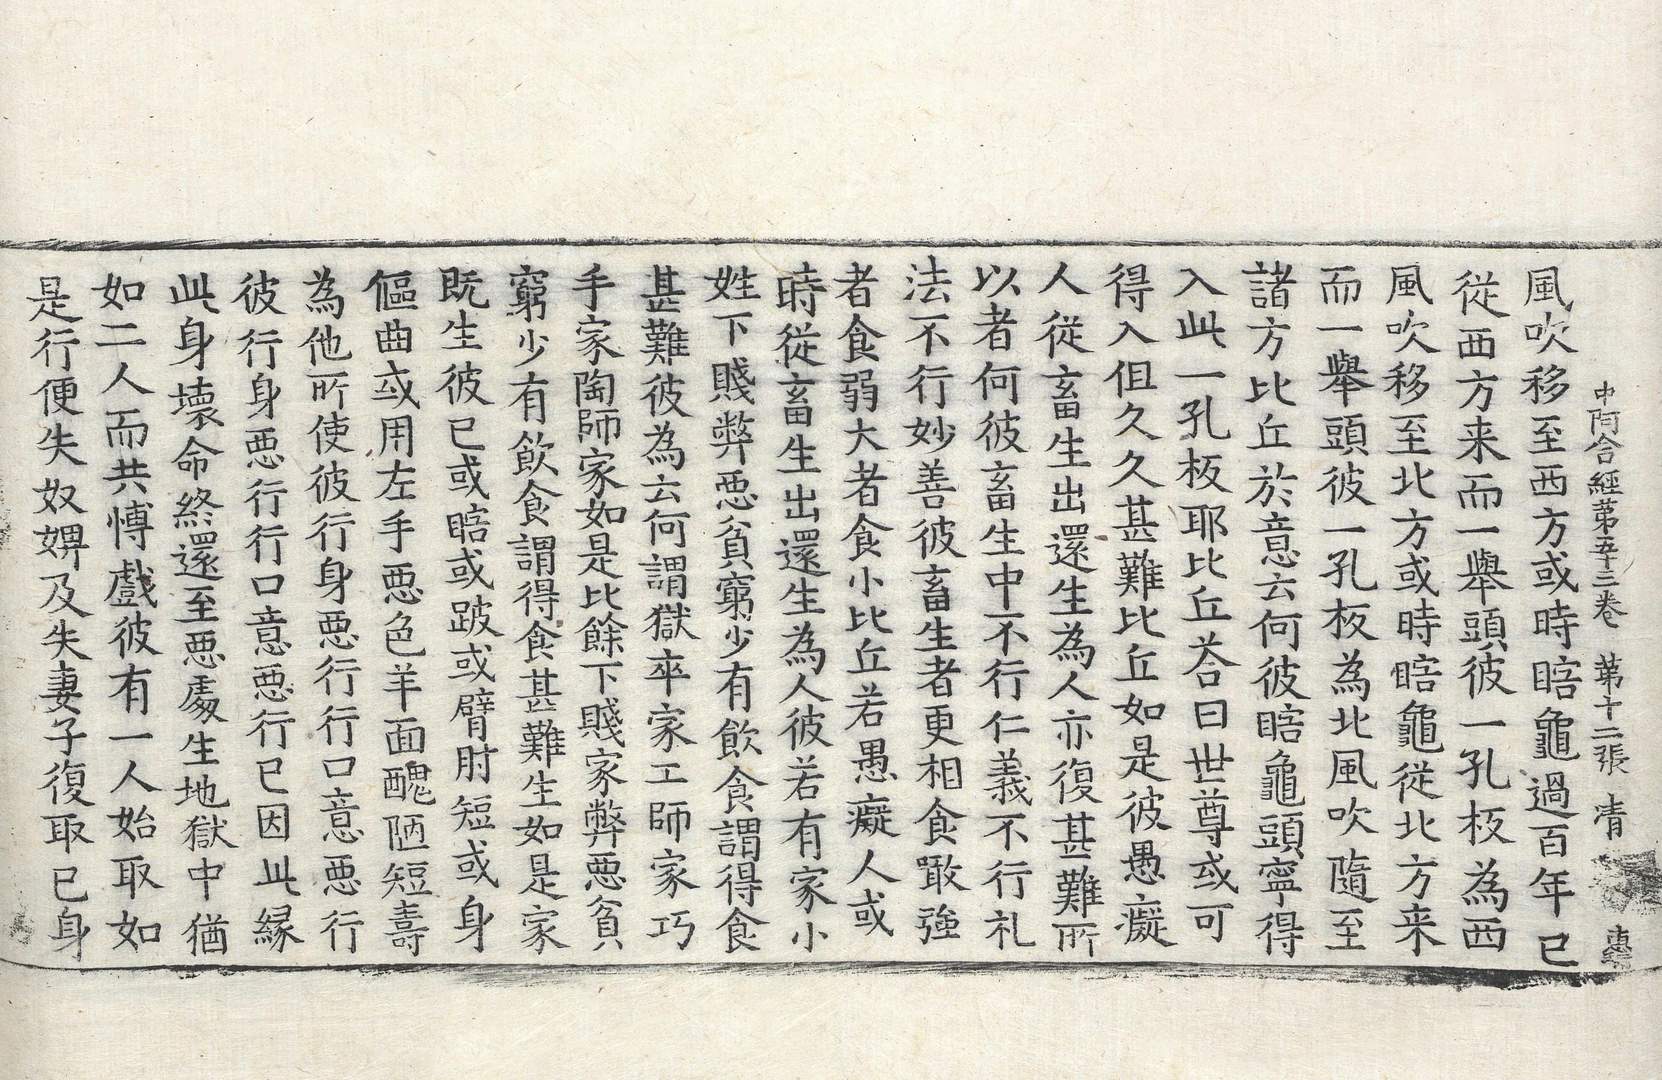 中阿含經第五十三卷 第十二張 淸
風吹移至西方或時瞎龜過百年已
從西方来而一擧頭彼一孔板為西
風吹移至北方或時瞎龜從北方来
而一擧頭彼一孔板為北風吹隨至
諸方比丘於意云何彼瞎龜頭寧得
入此一孔板耶比丘荅曰世尊或可
得入但久久甚難比丘如是彼愚癡
人從畜生出還生為人亦復甚難所
以者何彼畜生中不行仁義不行礼
法不行妙善彼畜生者更相食噉強
者食弱大者食小比丘若愚癡人或
時從畜生出還生為人彼若有家小
姓下賤弊惡貧窮少有飮食謂得食
甚難彼為云何謂獄卒家工師家巧
手家陶師家如是比餘下賤家弊惡貧
窮少有飮食謂得食甚難生如是家
既生彼已或瞎或跛或臂肘短或身
傴曲或用左手惡色羊面醜陋短壽
為他所使彼行身惡行行口意惡行
彼行身惡行行口意惡行已因此縁
此身壞命終還至惡處生地獄中猶
如二人而共博戲彼有一人始取如
是行便失奴婢及失妻子復取已身